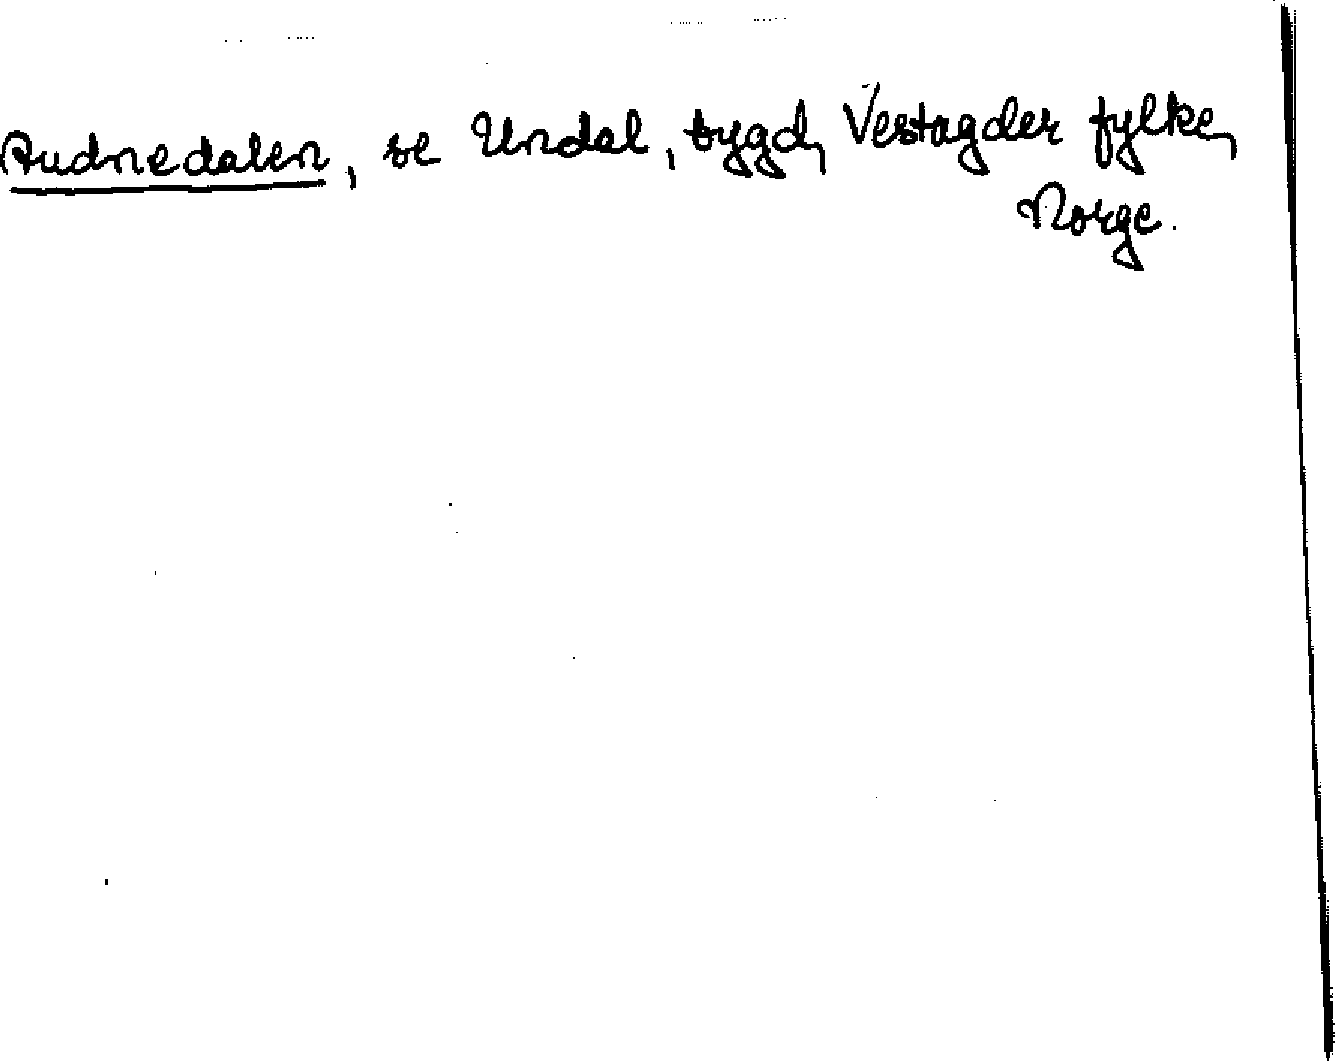 Audnedalen, se Undal, bygd, Vestagder fylke,
Norge.